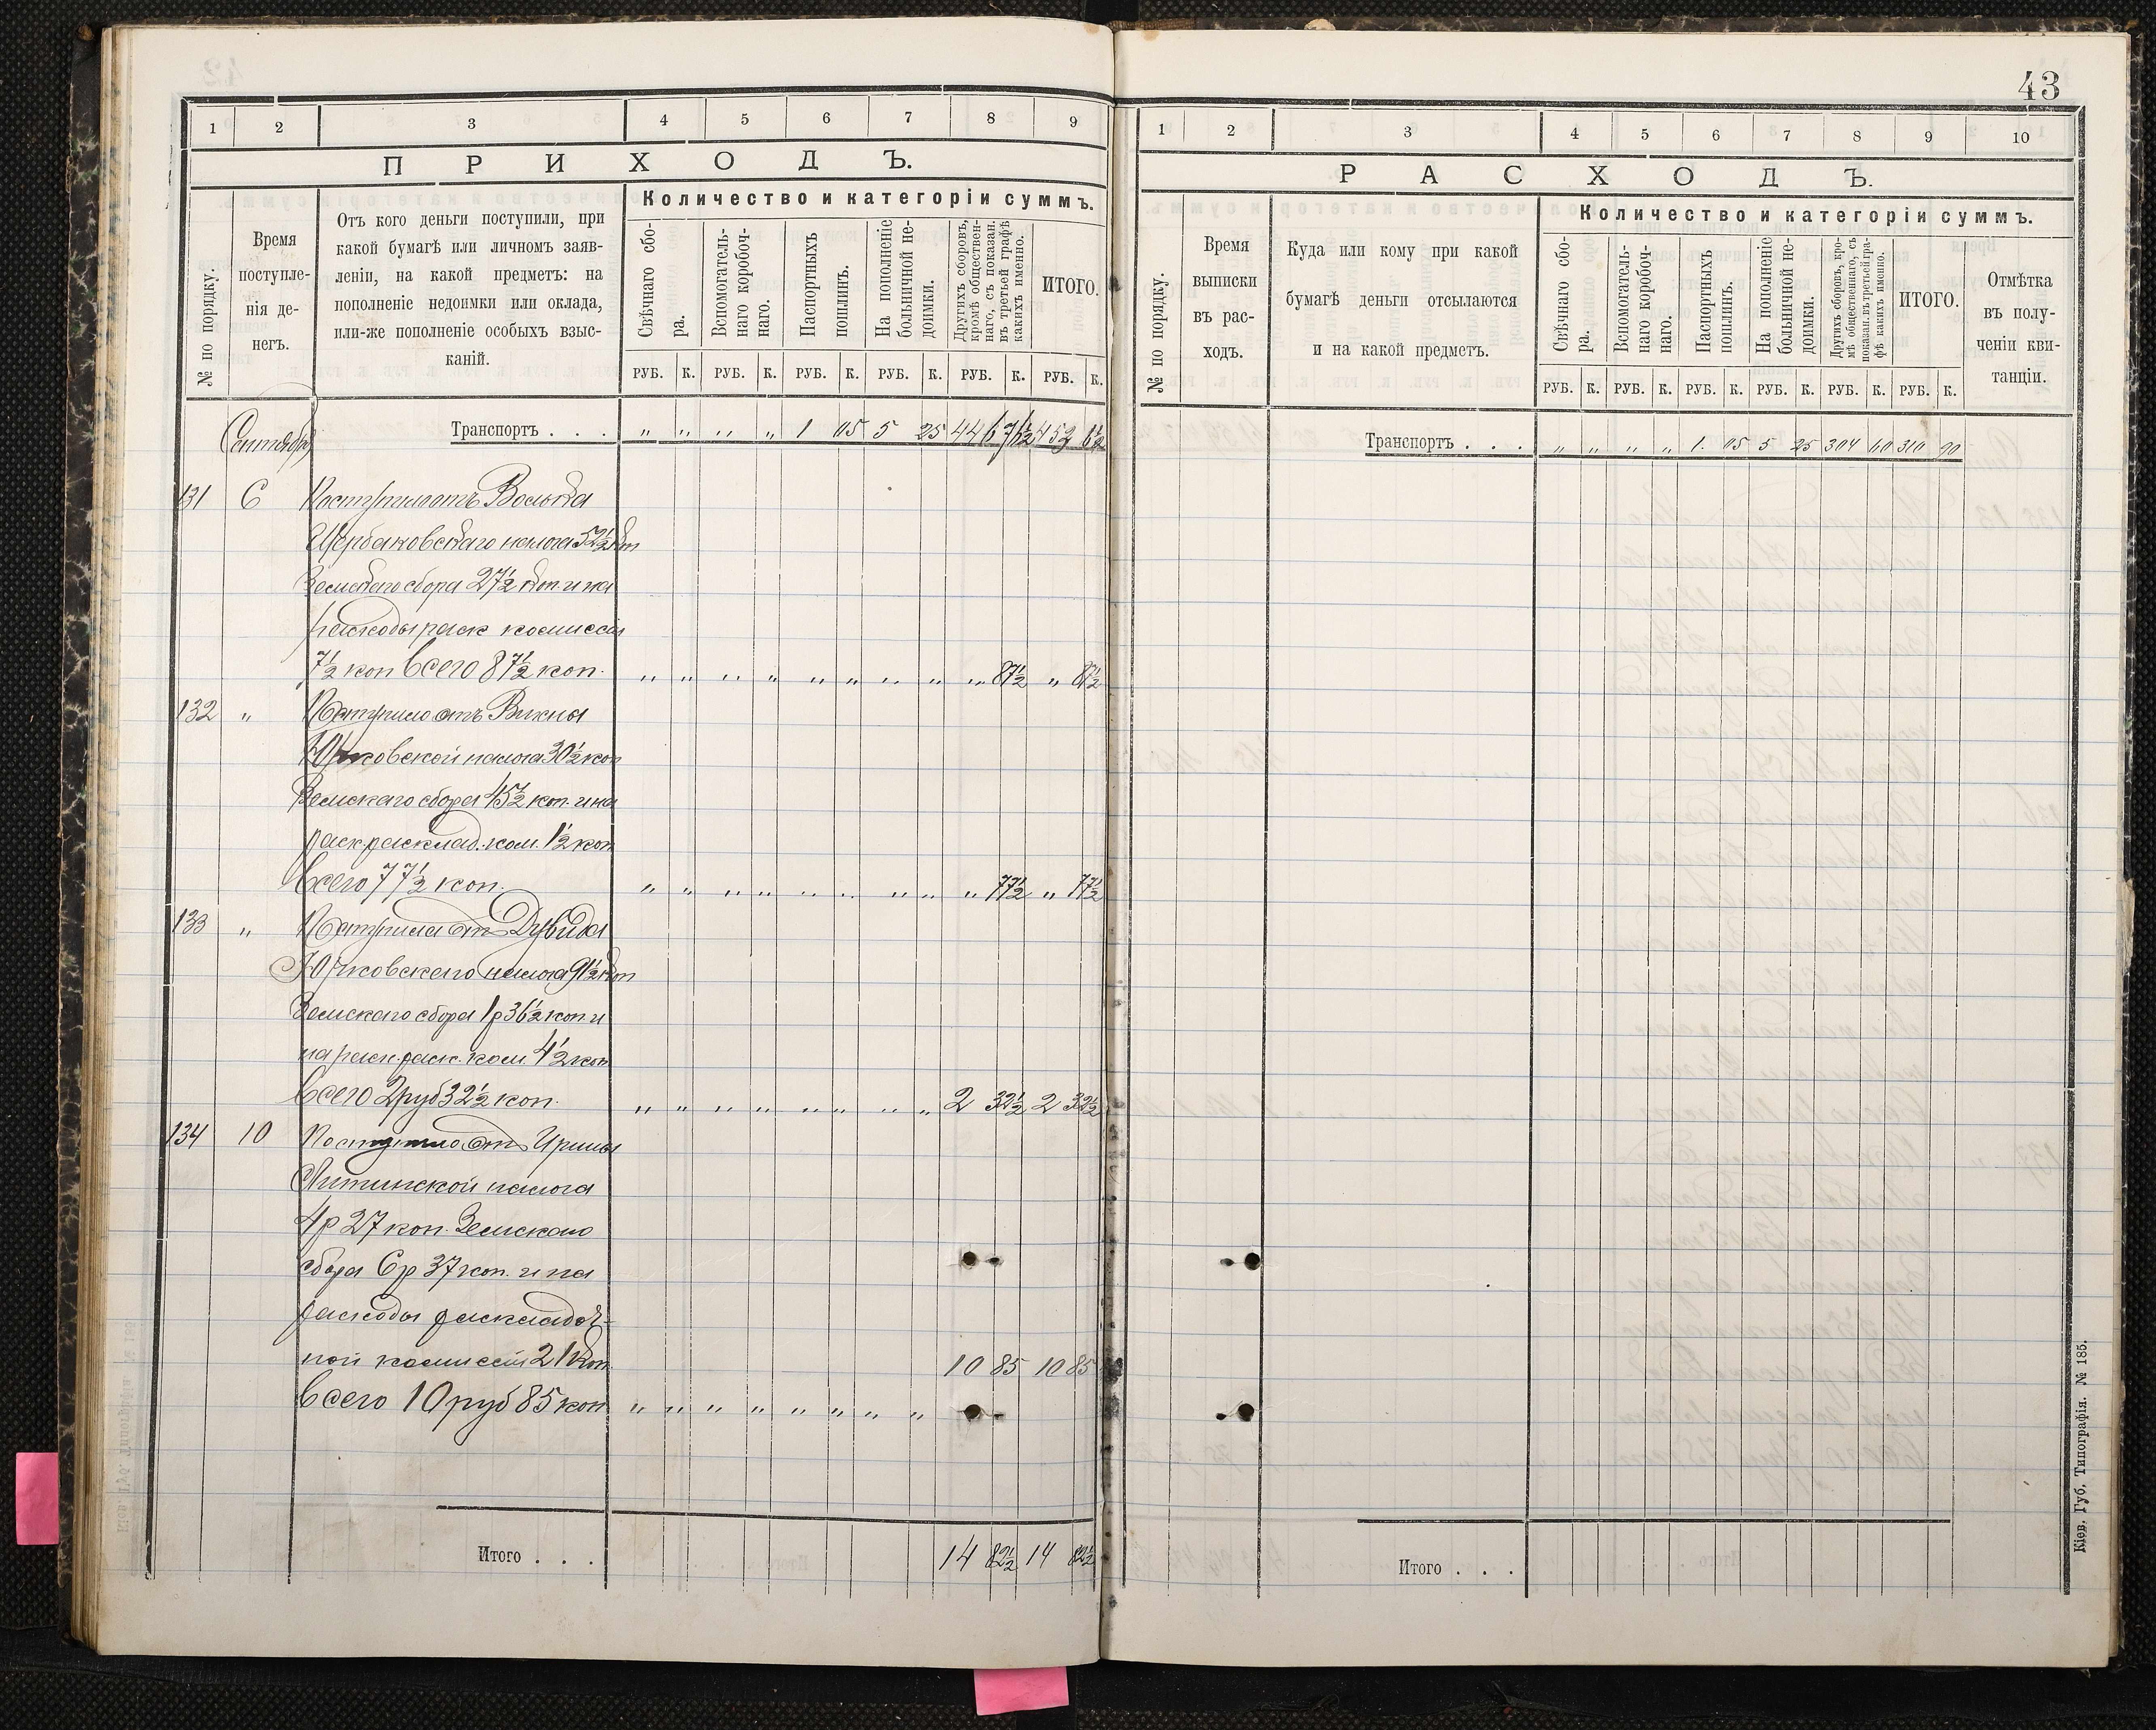 43
1 2 3 4 5 6 7 8 9
ПРИХОДЪ.
№ по порядку.
Время
поступле-
нія де-
негъ.
Отъ кого деньги поступили, при
какой бумагѣ или личномъ заяв-
леніи, на какой предметъ: на
пополненіе недоимки или оклада,
или-же пополненіе особыхъ взыс-
каній.
Количество и категоріи суммъ.
Свѣчнаго сбо-
ра.
Вспомогатель-
наго коробоч-
наго.
Паспортныхъ
пошлинъ.
На пополненіе
больничной не-
доимки.
Другихъ сборовъ,
кромѣ обществен-
наго, съ показан.
въ третьей графѣ
какихъ именно.
ИТОГО.
РУБ. К. РУБ. К. РУБ. К. РУБ. К. РУБ. К. РУБ. К.
Транспортъ . . . „ „ „ „ 1 05 5 25 446 76½ 453 6½
Сентябрь
131 6 Поступило отъ Вольфа
Щербаковскаго налога 52½ коп
Земскаго сбора 27½ коп и на
расходы раск комиссіи
7½ коп Всего 87½ коп. „ „ „ „ „ „ „ „ „ 87½ „ 87½
132 „ Поступило отъ
налога 30½ коп
Земскаго сбора 45½ коп. и на
раск. расклад. ком. 1½ коп
Всего 77½ коп. „ „ „ „ „ „ „ „ „ 77½ „ 77½
133 „ Поступило от Дувида
Ючковскаго налога 91½ коп
Земскаго сбора 1 р 36½ коп и
на раск. раск. ком. 4½ коп
Всего 2 руб 32½ коп. „ „ „ „ „ „ „ „ 2 32½ 2 32½
134 10 Поступило от Ирины
Литинской налога
4 р 27 коп. Земскаго
сбора 6 р 37 коп. и на
расходы расклодоч-
ной комиссіи 21 коп. 10 85 10 85
Всего 10 руб 85 коп „ „ „ „ „ „ „ „
Итого . . . 14 82½ 14 82½
1 2 3 4 5 6 7 8 9 10
РАСХОДЪ.
№ по порядку.
Время
выписки
въ рас-
ходъ.
Куда или кому при какой
бумагѣ деньги отсылаются
и на какой предметъ.
Количество и категоріи суммъ.
Свѣчнаго сбо-
ра.
Вспомогатель-
наго коробоч-
наго.
Паспортныхъ
пошлинъ.
На пополненіе
больничной не-
доимки.
Другихъ сборовъ, кро-
мѣ общественнаго, съ
показан. въ третьей гра-
фѣ какихъ именно.
ИТОГО.
Отмѣтка
въ полу-
ченіи кви-
танціи.
РУБ. К. РУБ. К. РУБ. К. РУБ. К. РУБ. К. РУБ. К.
Транспортъ . . . „ „ „ „ 1. 05 5 25 304 60 310 90
Итого . . .
Кіев. Губ. Типографія. № 185.